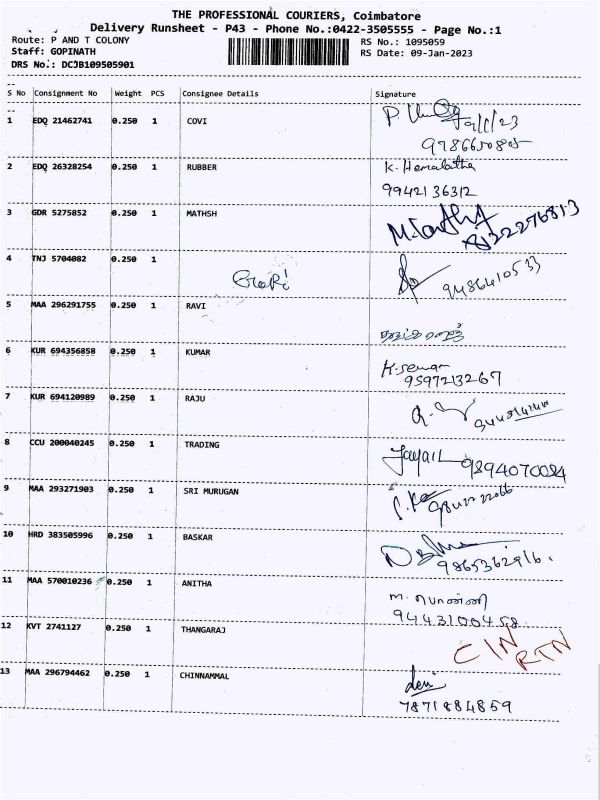 THE PROFESSIONAL COURIERS, Coimbatore
Delivery Runsheet - P43 - Phone No.:0422-3505555 - Page No.:1
Route: P AND T COLONY
RS No.: 1095059
Staff: GOPINATH
RS Date: 09-Jan-2023
DRS No.: DCJB109505901
S No Consignment No Weight PCS Consignee Details Signature
1 EDQ 21462741 0.250 1 COVI
2 EDQ 26328254 0.250 1 RUBBER K. Hemalatha
9942136312
3 GDR 5275852 0.250 1 MATHSH
8122276813
4 TNJ 5704082 0.250 1
9486410533
5 MAA 296291755 0.250 1 RAVI
6 KUR 694356858 0.250 1 KUMAR
9597213267
7 KUR 694120989 0.250 1 RAJU
8 CCU 200040245 0.250 1 TRADING
9894070084
9 MAA 293271903 0.250 1 SRI MURUGAN
10 HRD 383505996 0.250 1 BASKAR
9865362916.
11 MAA 570010236 0.250 1 ANITHA
9443100458
12 KVT 2741127 0.250 1 THANGARAJ
CIN RTN
13 MAA 296794462 0.250 1 CHINNAMMAL devi
7871884859